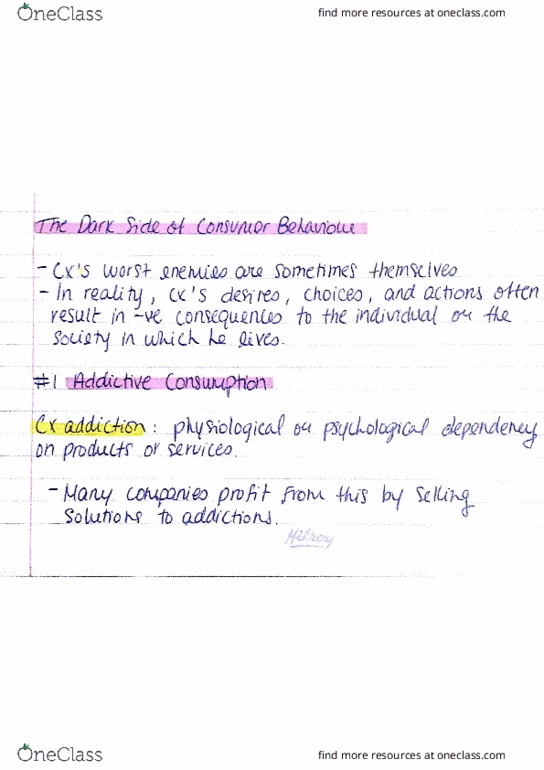 OneClass
find more resources at oneclass.com
The Dark Side of Consumer Behaviour
- Cx's worst enemies are sometimes themselves
- In reality, cx's desires, choices, and actions often
result in -ve consequences to the individual or the
society in which he lives.
#1 Addictive Consumption
Cx addiction: physiological or psychological dependency
on products or services.
- Many companies profit from this by selling
solutions to addictions.
Hilroy
OneClass
find more resources at oneclass.com